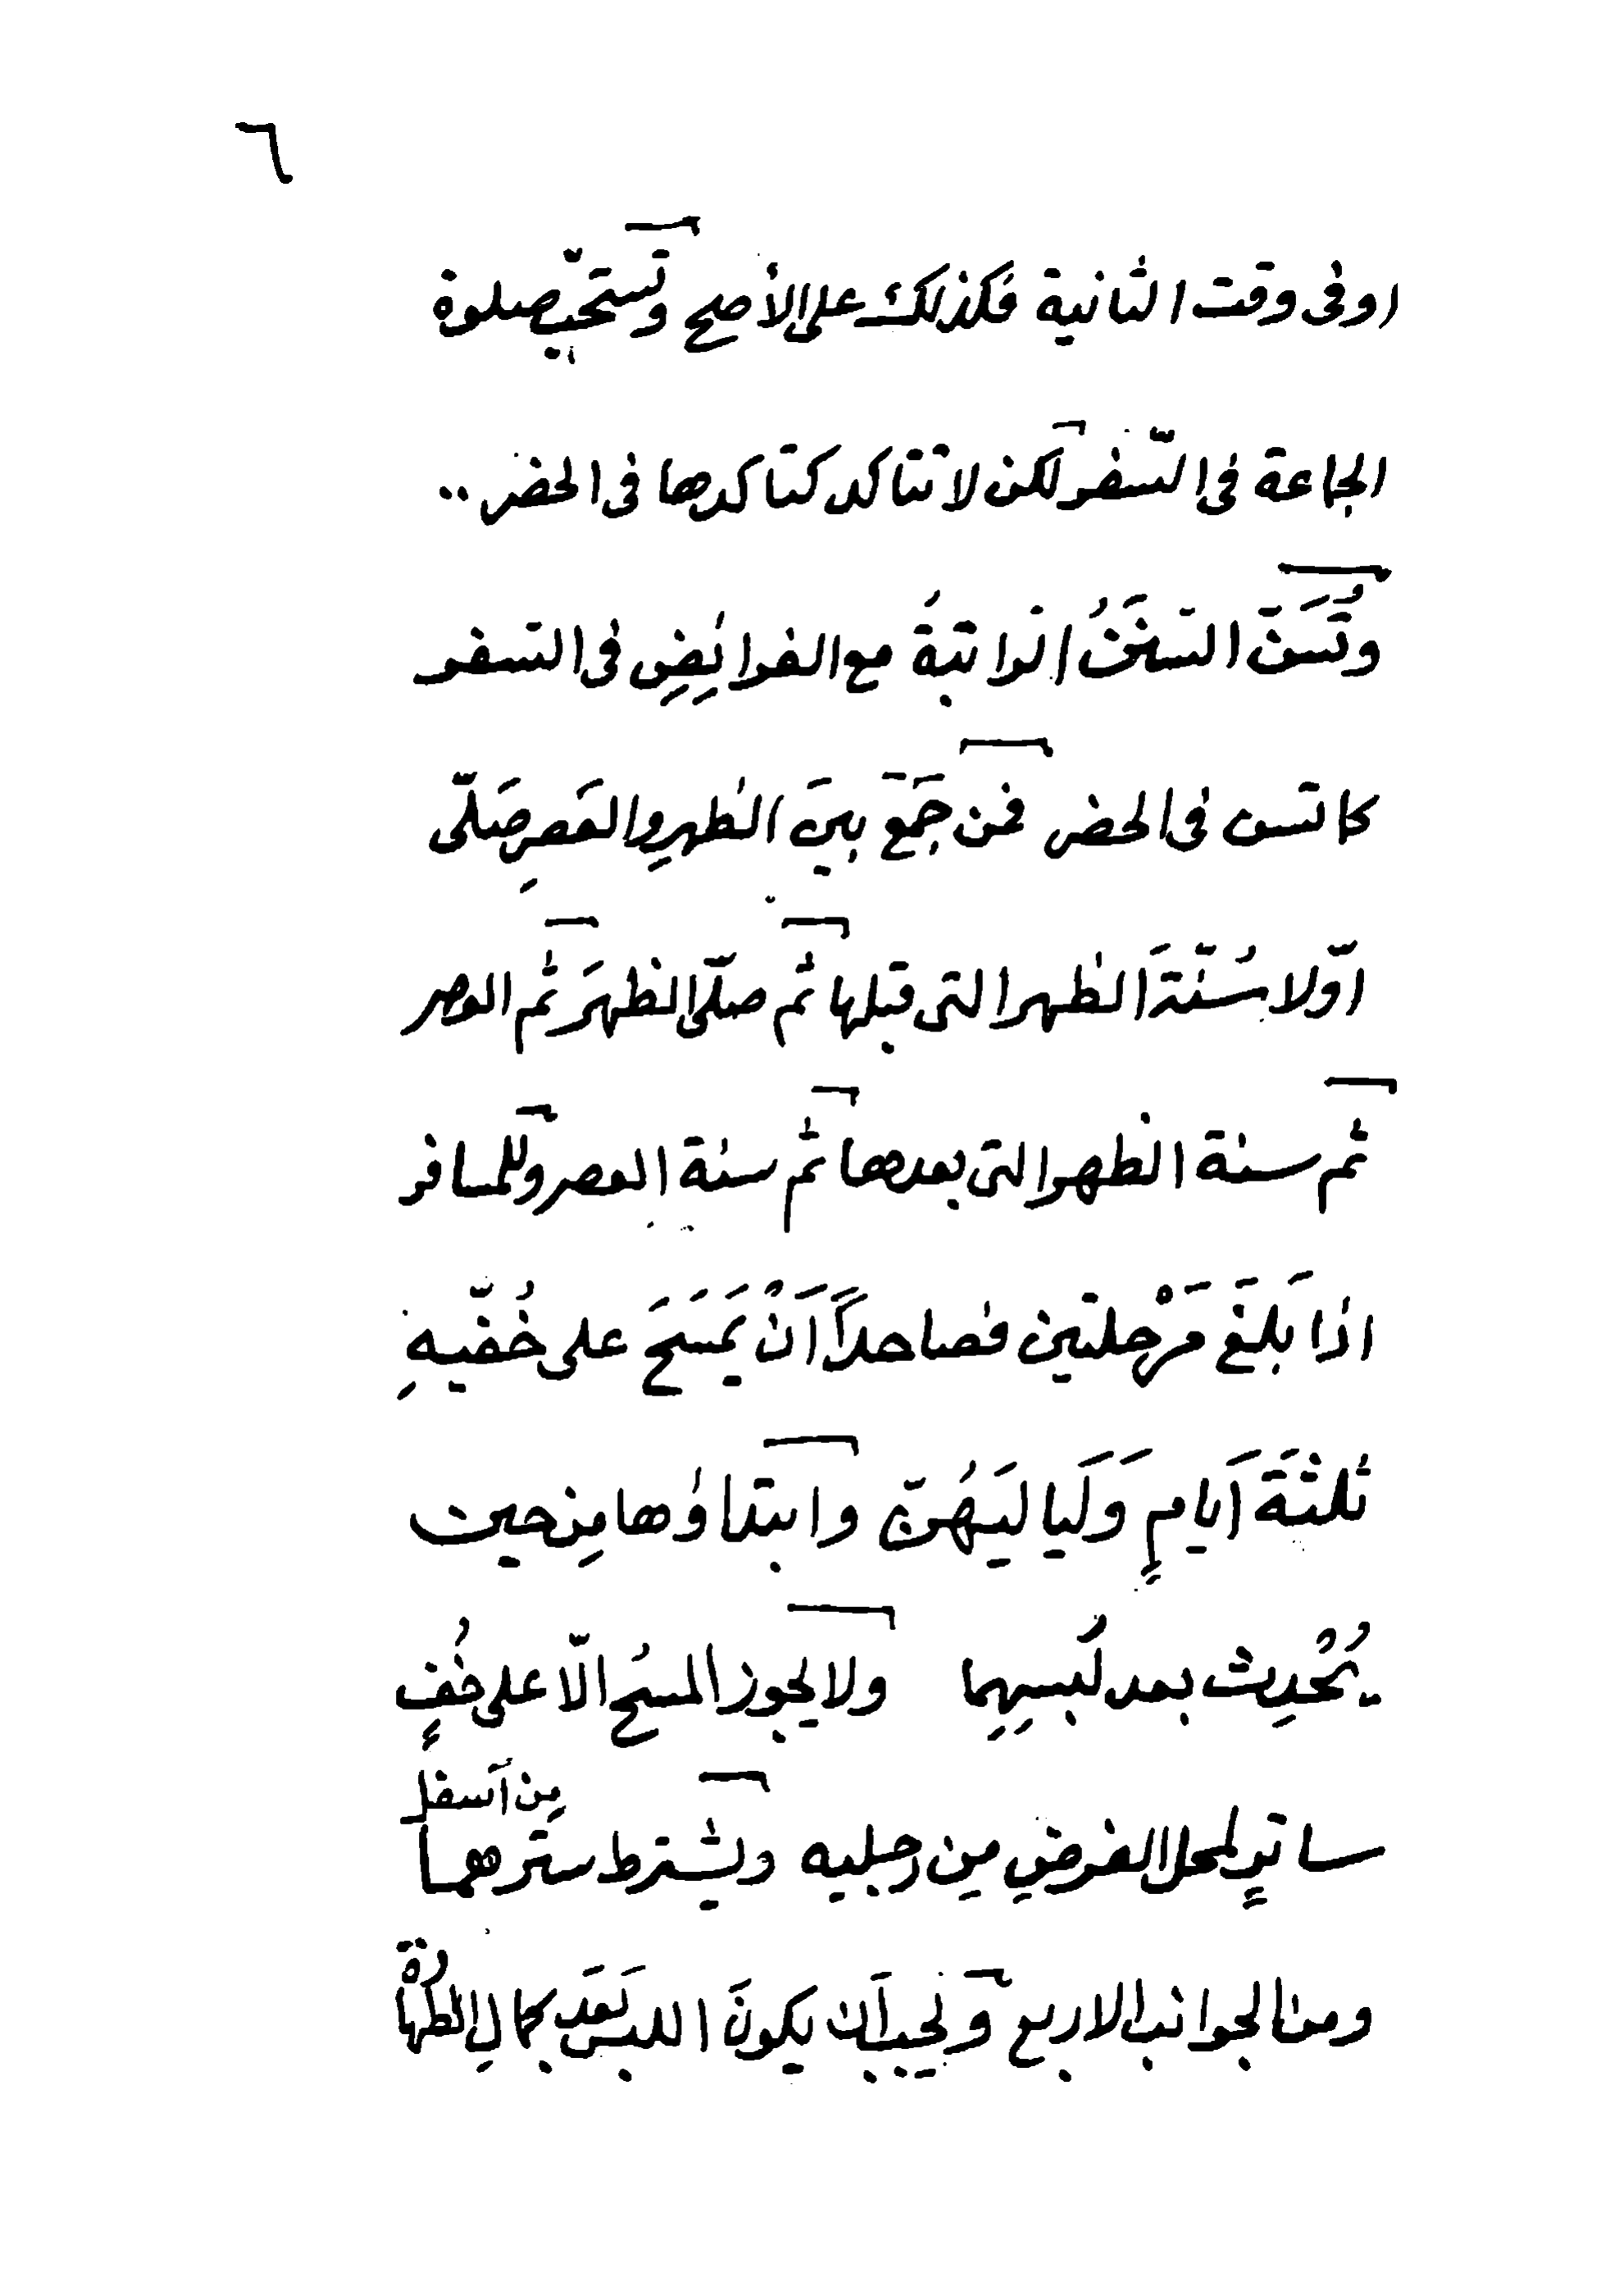 ٦
او فى وقت الثانية فكذلك على الأصح وتستحبّ صلوة
الجماعة فى السّفر لكن لا تتاكد كتاكدها فى الحضر ..
وتُسَنّ السّنَنُ الرّاتبةُ مع الفرائِضِ فى السّفر
كما تسن فى الحضر فمن جَمَعَ بينَ الظهرِ والعَصرِ صَلّى
اوّلا سُنّةَ الظهر التى قبلها ثم صلّى الظهرَ ثم العصر
ثم سنة الظهر التى بعدها ثم سنة العصر وللمسافر
اذا بَلَغَ مَرْحلتين فصاعداً اَنْ يَمسَحَ على خُفّيهِ
ثلثةَ اَيامٍ وَلَياليَهُنّ وابتداؤها مِن حين
يُحْدِث بعد لُبسِهِما ولا يجوز المسحُ الّا على خُفٍ
ساترٍ لمحل الفرضِ مِن رجليه ويشترط سترهما
مِن اَسفل
ومن الجوانب الاربع ويجب اَن يكونَ اللبس بَعَد كمالِ الطهارة